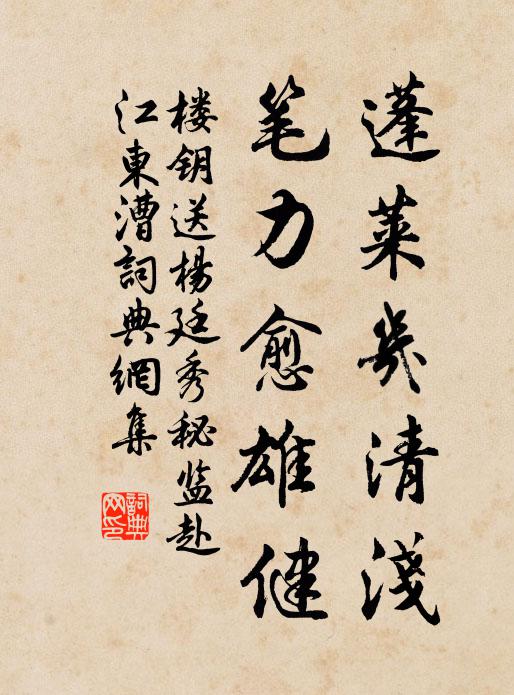 蓬莱几清淺
笔力愈雄健
楼钥送楊廷秀秘监赴
江東漕詞典網集
詞典网印